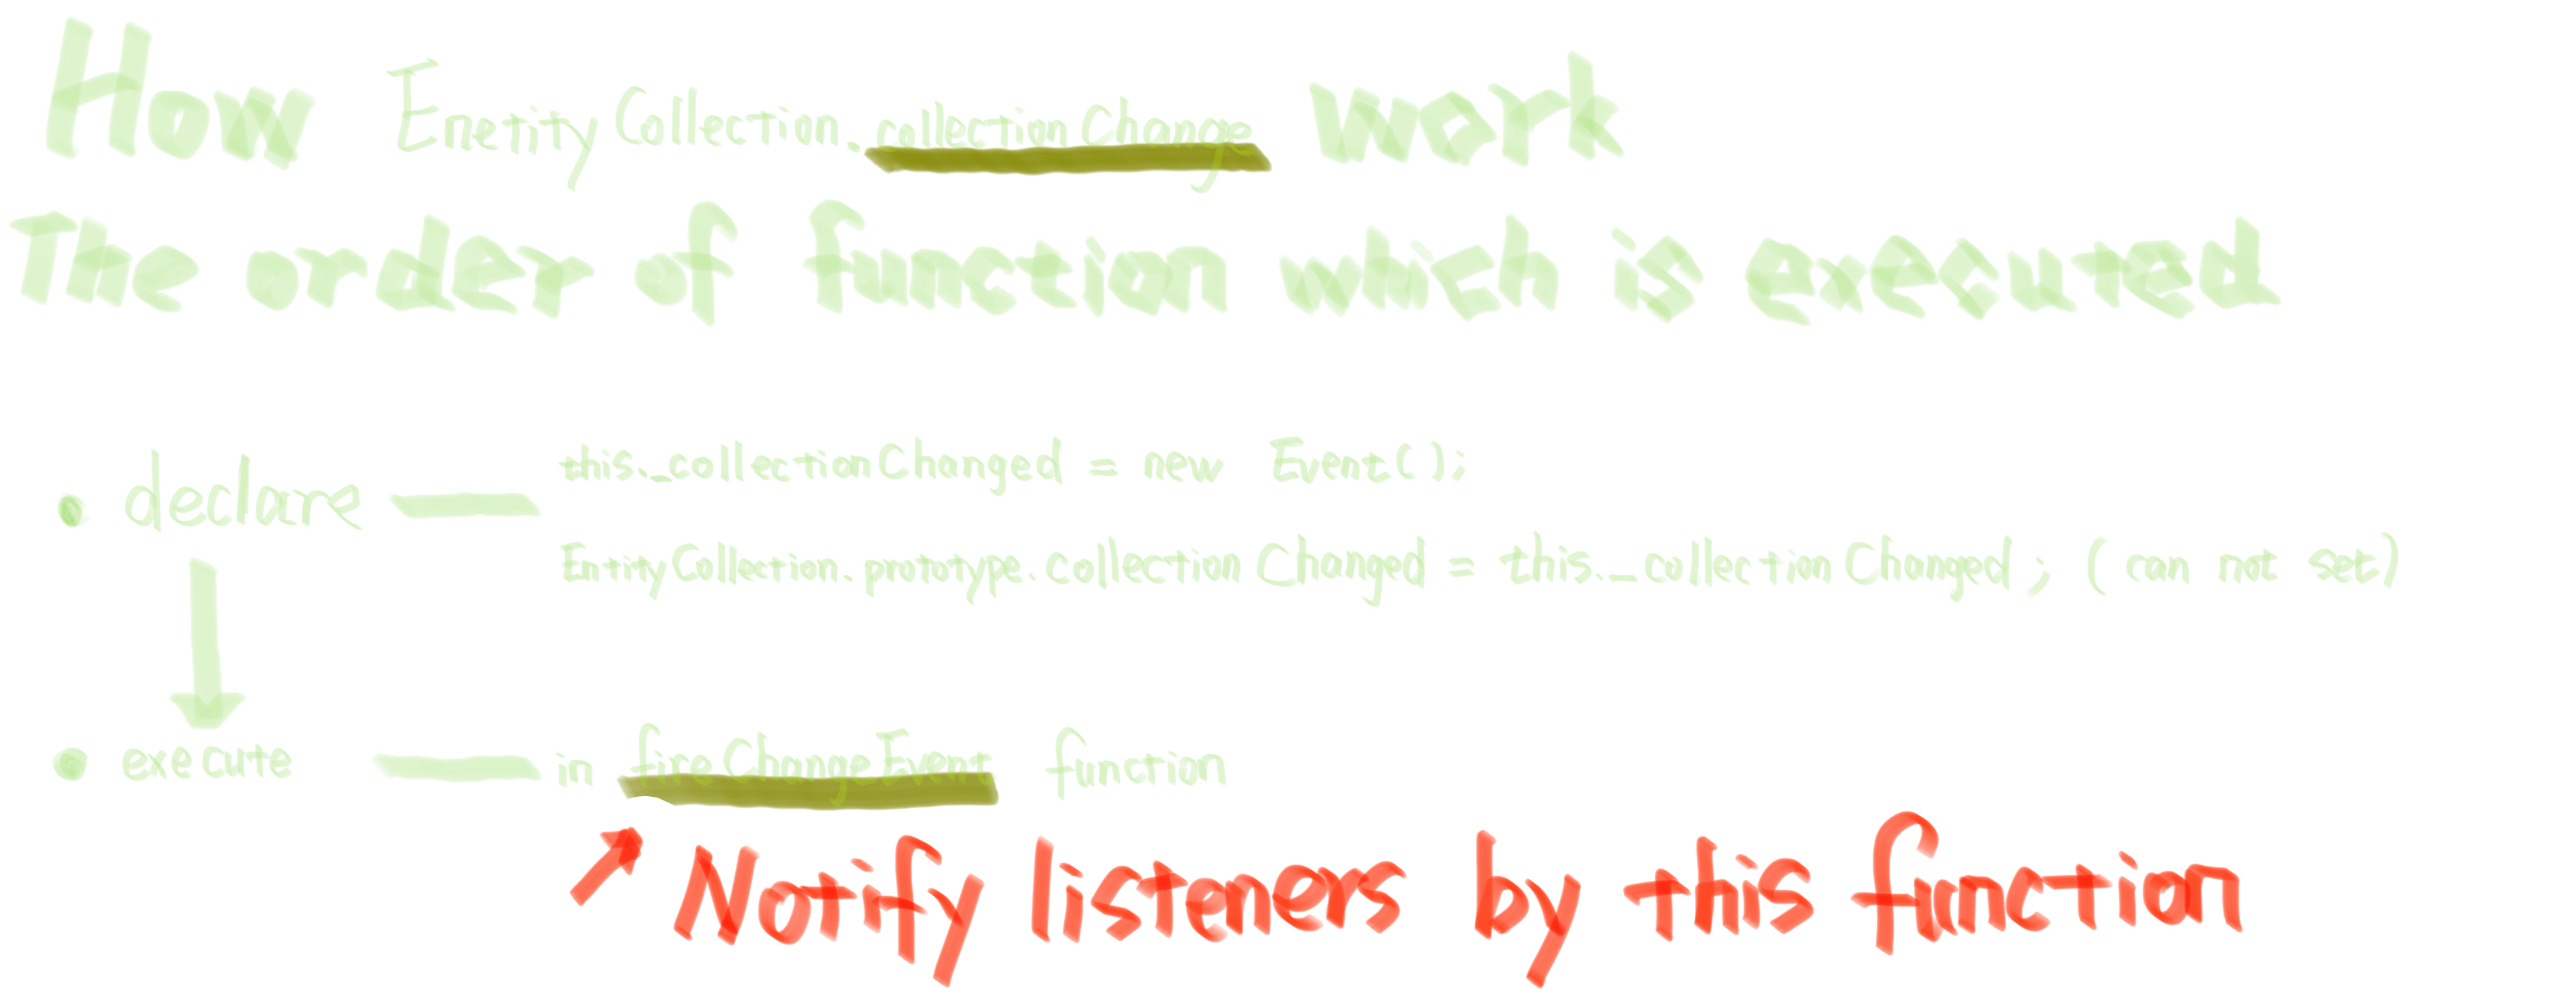 How EnetityCollection.collectionChange work
The order of function which is executed
this._collectionChanged = new Event();
• declare
EntityCollection.prototype.collectionChanged = this._collectionChanged; (can not set)
• execute — in fireChangeEvent function
Notify listeners by this function